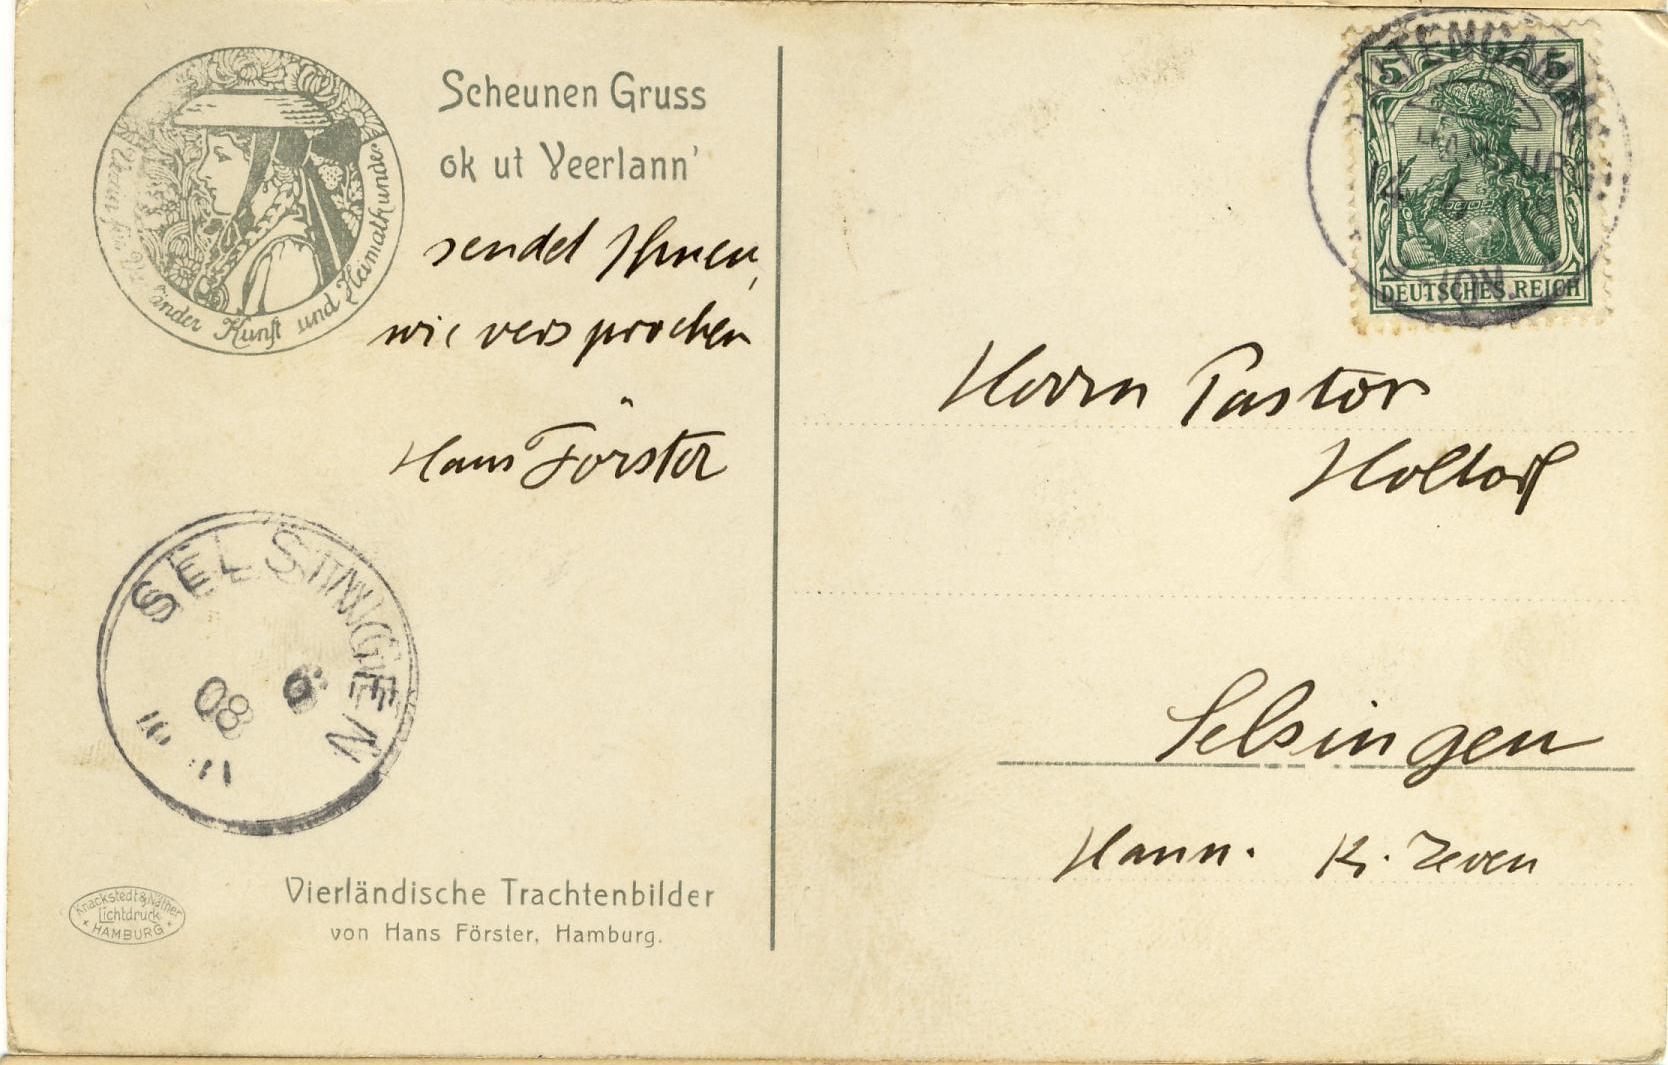 Scheunen Gruss
ok ut Veerlann'
sendet Ihnen,
wie versprochen
Hans Förster
Verein für Vierländer Kunst und Heimatkunde
SELSINGEN
08
Vierländische Trachtenbilder
von Hans Förster, Hamburg.
Knackstedt & Näther
Lichtdruck
HAMBURG
5 5
DEUTSCHES REICH
Herrn Pastor
Holtorf
Selsingen
Hann. K. Zeven